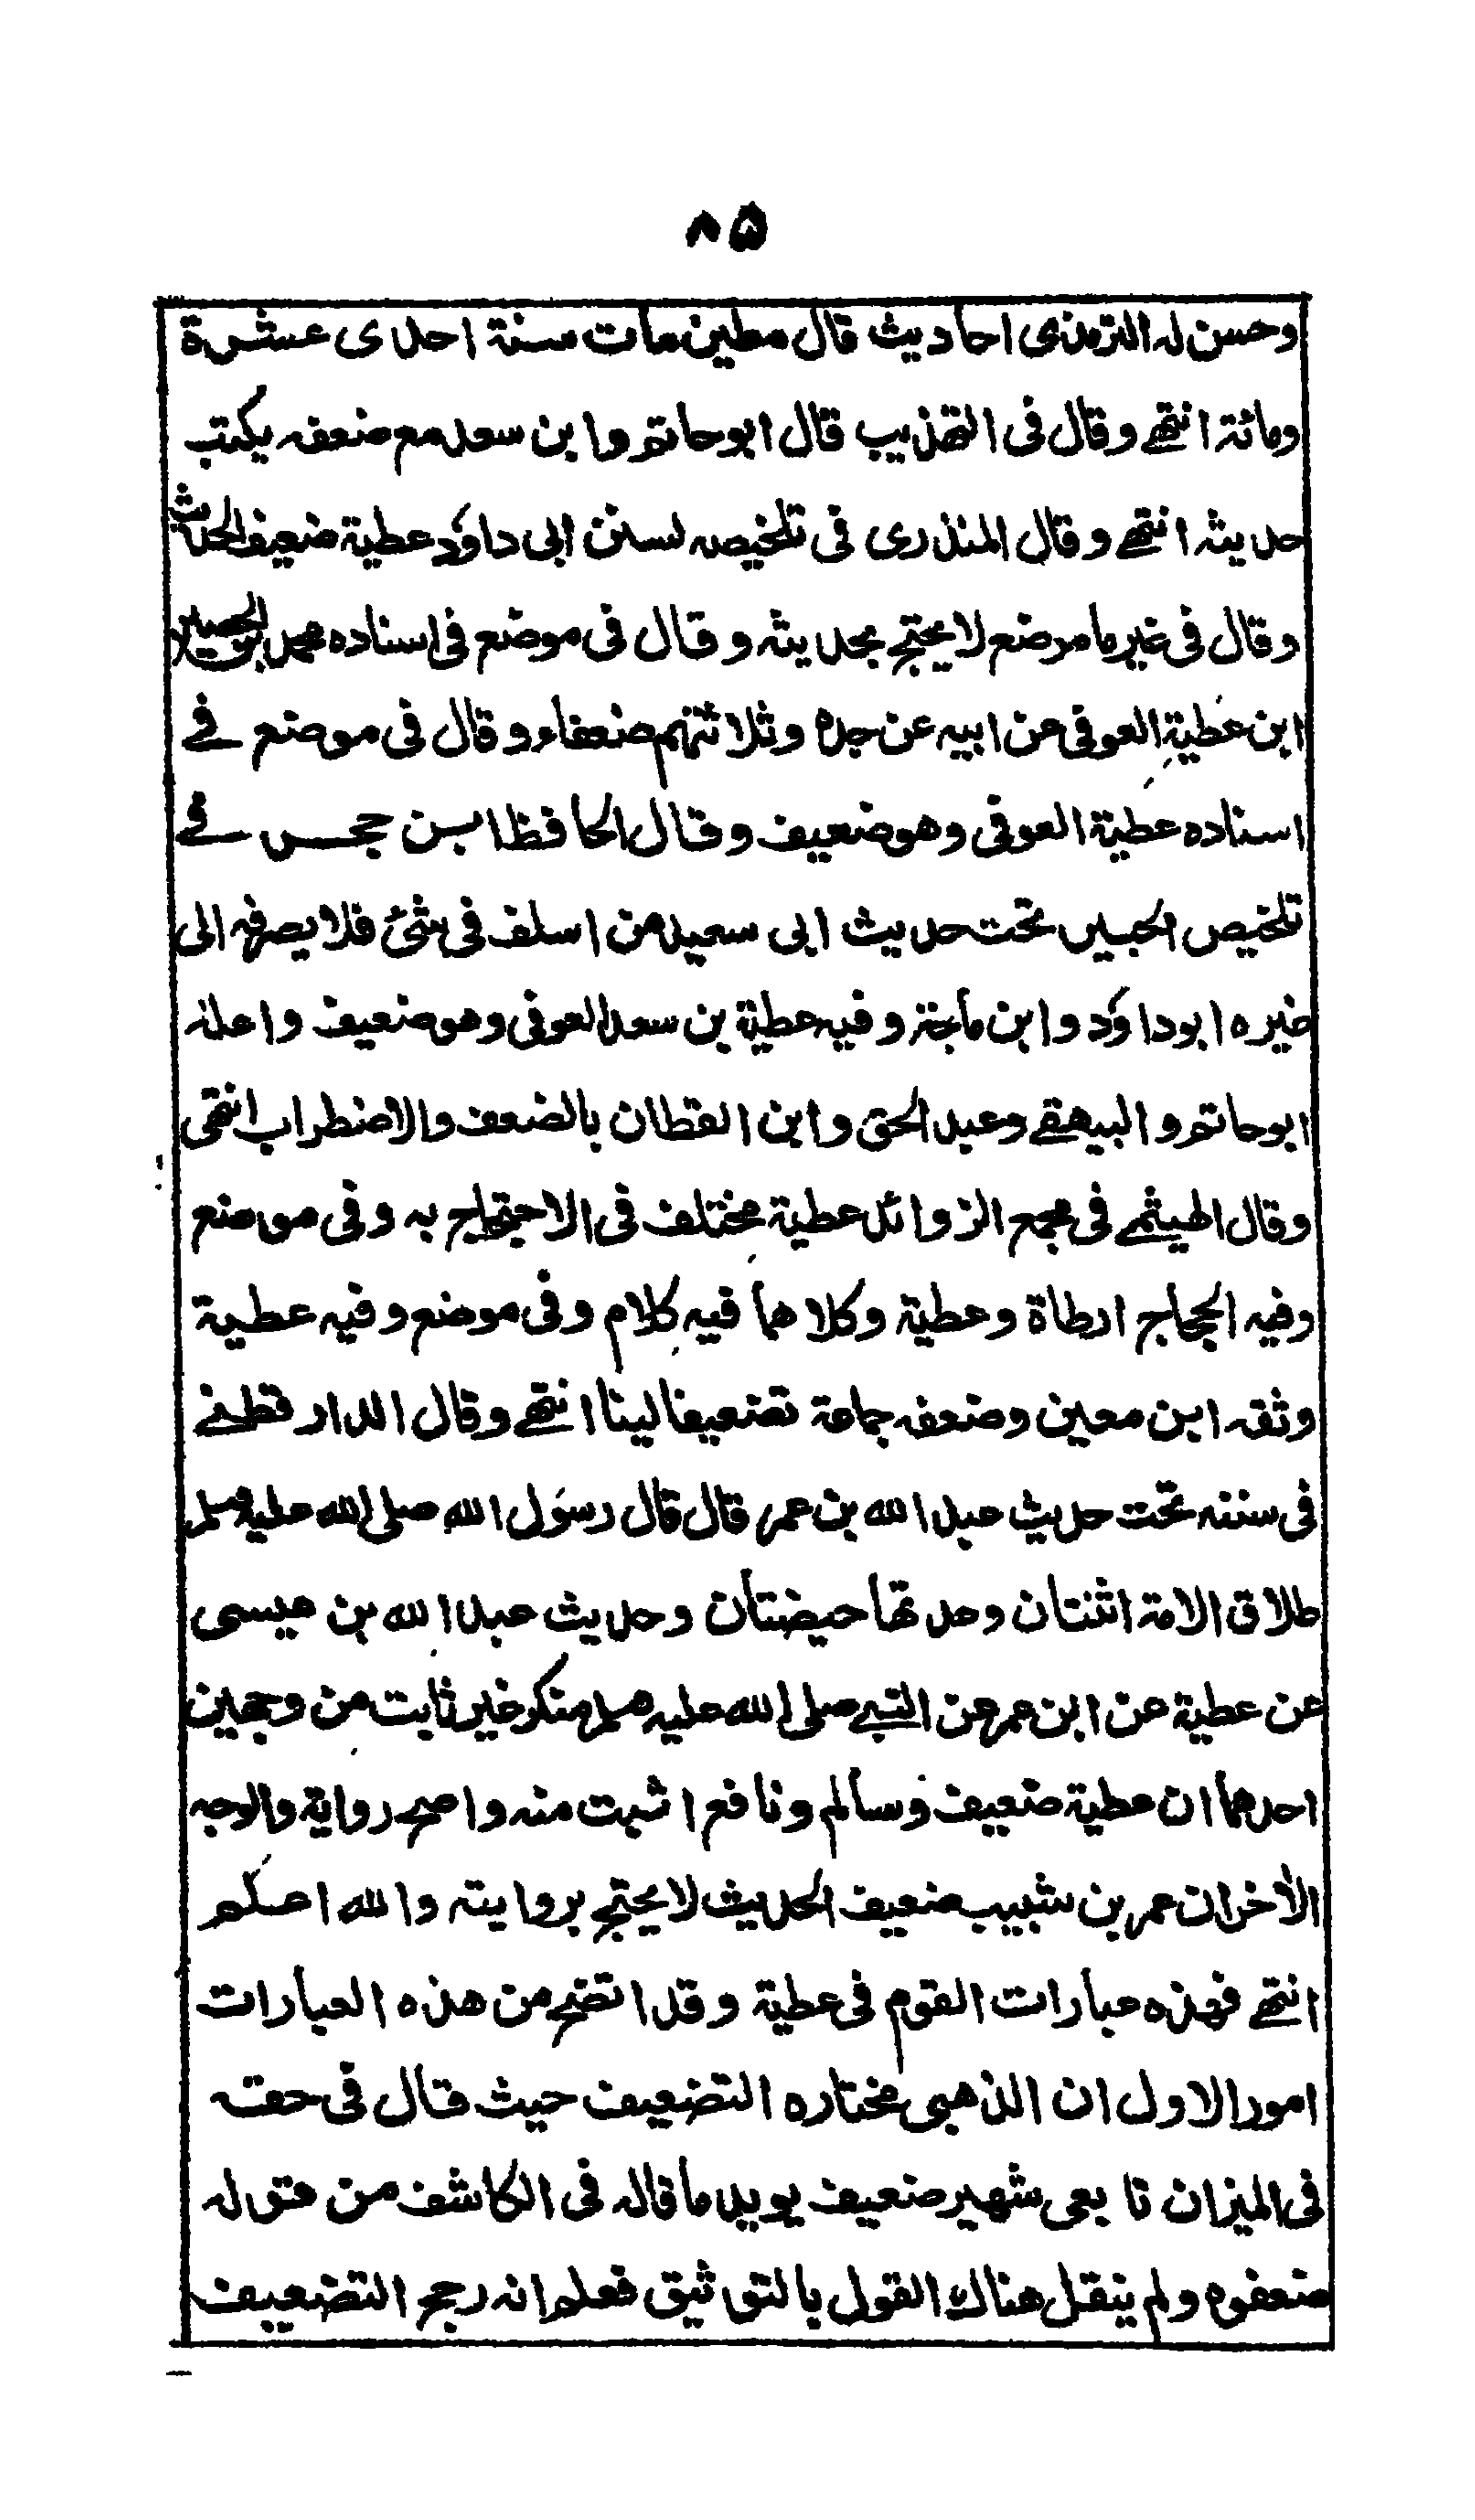 ٨٥
وحسن له الترمذى احاديث قال مطين مات سنة احدى عشرة
ومائة انتهے وقال فى التهذيب قال ابوحاتم وابن سعد مع ضعفه يكتب
حديثه انتهے وقال المنذرى فى تلخيصه لسنن ابى داؤد عطية ضعيف الحديث
وقال فى غير ما موضع لا يحتج بحديثه وقال فى موضع فى اسناده محمد بن الحسين
ابن عطية العوفى عن ابيه عن جده وثلاثتهم ضعفاء وقال فى موضع فے
اسناده عطية العوفى وهو ضعيف وقال الحافظ ابن حجر فے
تلخيص الحبير تحت حديث ابى سعيد من اسلف فى شئ فلا يصرفه الى
غيره ابوداؤد وابن ماجة وفيه عطية بن سعد العوفى وهو ضعيف واعله
ابوحاتم والبيهقے وعبد الحق وابن القطان بالضعف والاضطراب انتهى
وقال الهيثمے فى مجمع الزوائد عطية مختلف فى الاحتجاج به وفى موضع
وفيه الحجاج ارطاة وعطية وكلاهما فيه كلام وفى موضع وفيه عطية
وثقه ابن معين وضعفه جماعة تضعيفا لينا انتهے وقال الدارقطنے
فى سننه تحت حديث عبد الله بن عمر قال قال رسول الله صلى الله عليه وسلم
طلاق الامة اثنتان وعدتها حيضتان وحديث عبد الله بن عيسى
عن عطية عن ابن عمر عن النبے صلى الله عليه وسلم منكر غير ثابت من وجهين
احدهما ان عطية ضعيف وسالم ونافع اثبت منه واصح رواية والوجه
الآخر ان عمر بن شبيب ضعيف الحديث لا يحتج بروايته والله اعلم
انتهے فهذه عبارات القوم فى عطية وقد اتضح من هذه العبارات
امور الاول ان الذهبى مختاره التضعيف حيث قال فى حقه
فى الميزان تابعى شهير ضعيف يويد ما قاله فى الكاشف من قوله
ضعفوه ولم ينقل هناك القول بالتوثيق فعلم انه رجح التضعيف